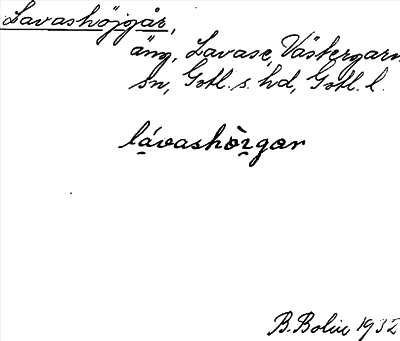 Lavashöjgår,
äng, Lavase, Västergarn
sn, Gotl. s. hd, Gotl. l.
lávashòrgar
B. Bolin 1932